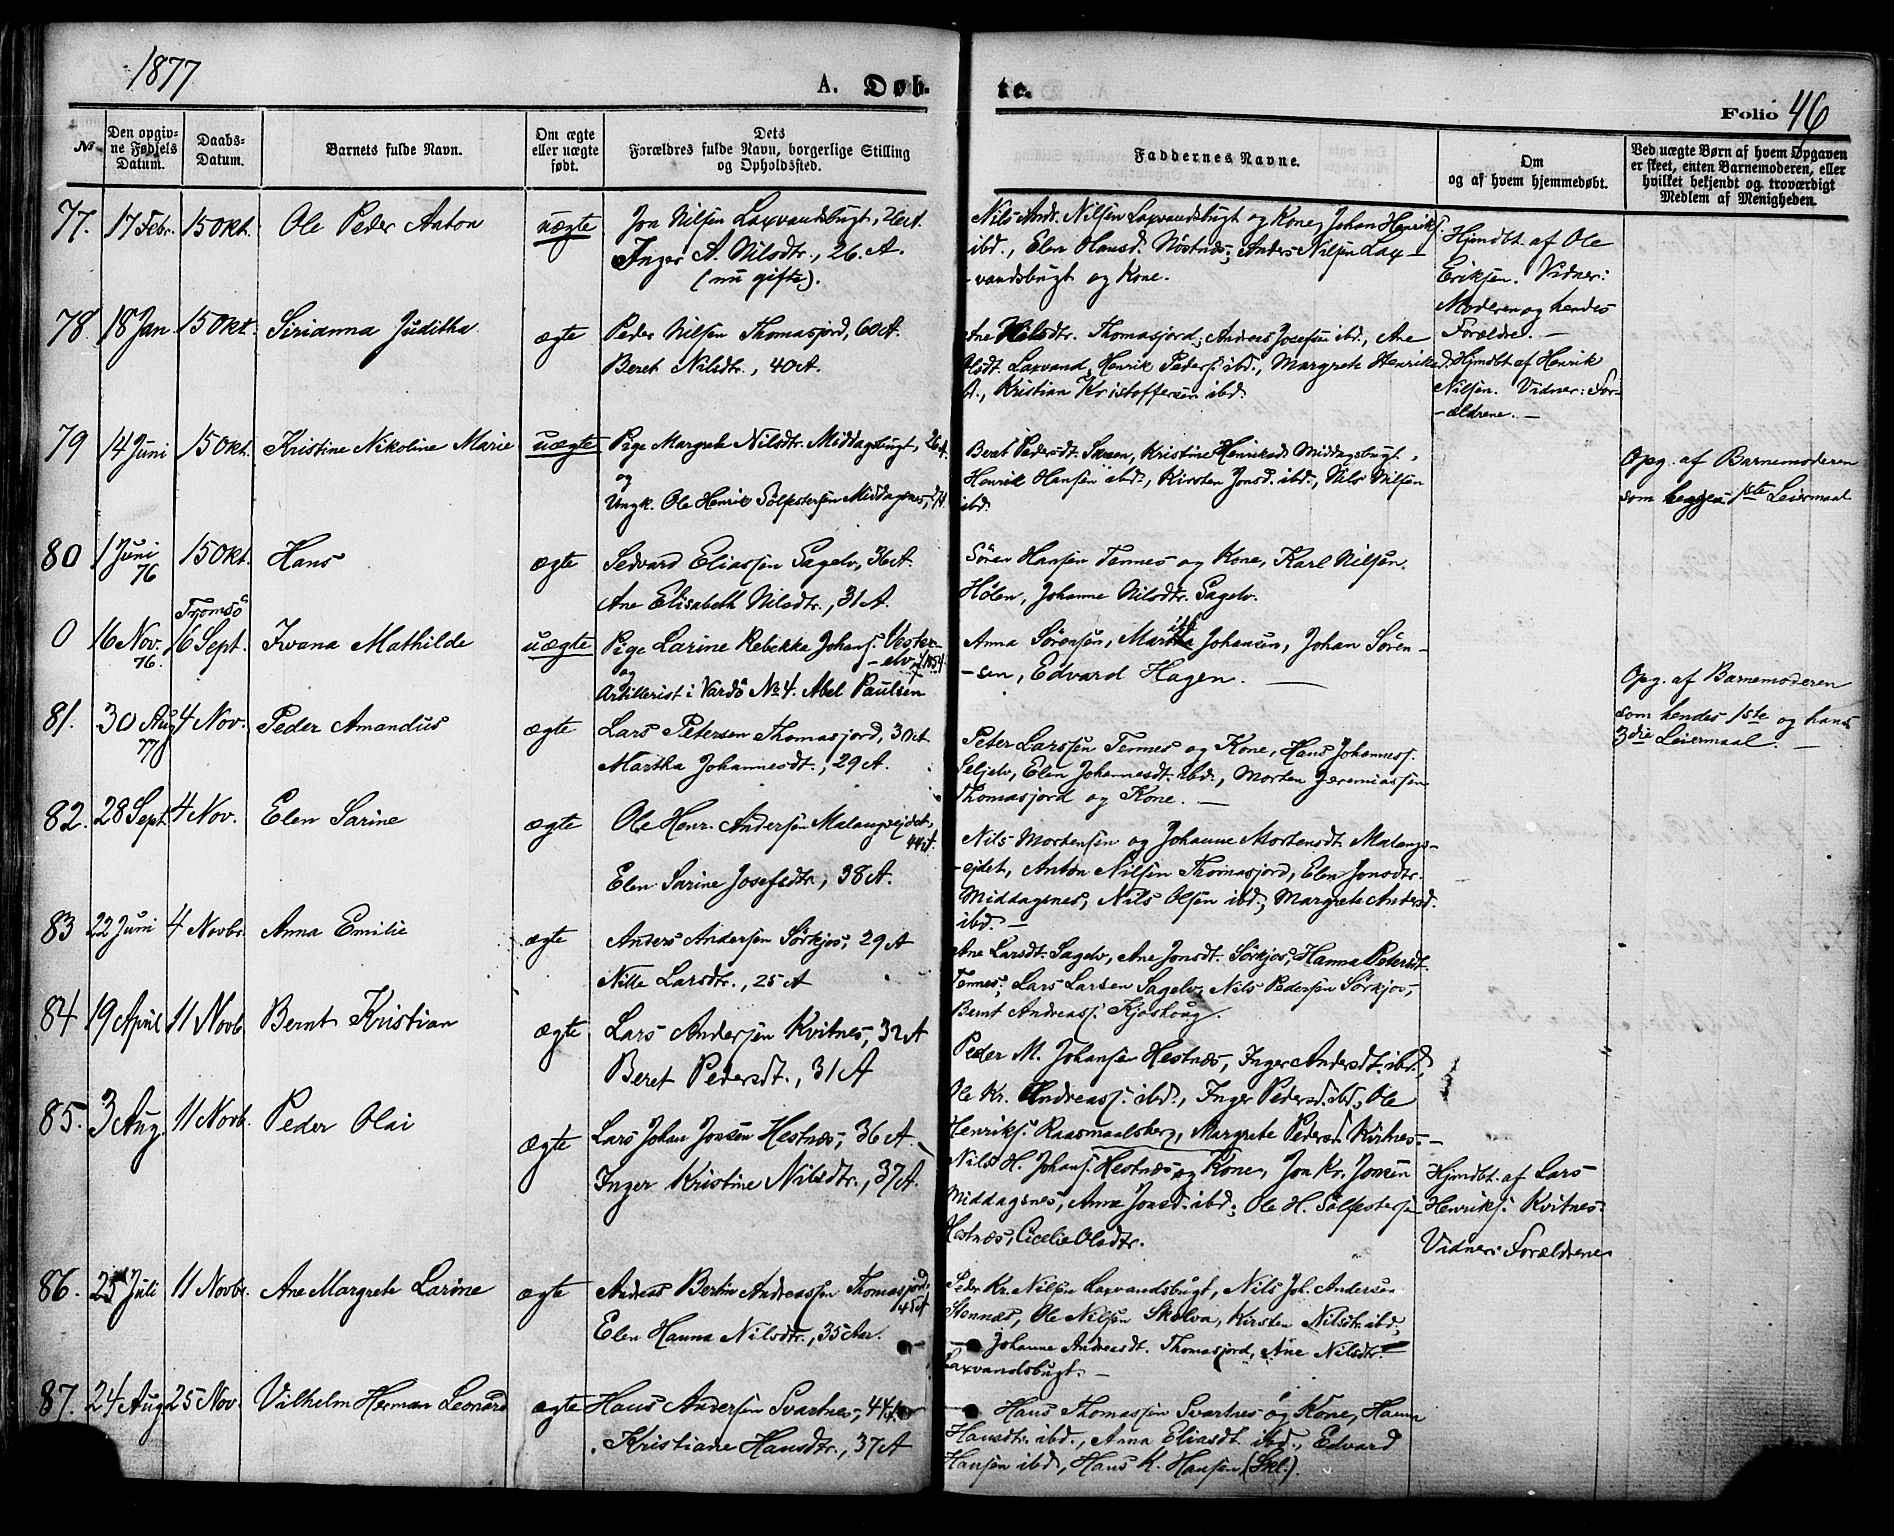 1877
A. Døb-
te.
Folio 46
№
Den opgiv-
ne Fødsels
Datum.
Daabs-
Datum.
Barnets fulde Navn.
Om ægte
eller uægte
født.
Dets
Forældres fulde Navn, borgerlige Stilling
og Opholdssted.
Faddernes Navne.
Om
og af hvem hjemmedøbt.
Ved uægte Børn af hvem Opgaven
er skeet, enten Barnemoderen, eller
hvilket bekjendt og troværdigt
Medlem af Menigheden.
77. 17 Febr. 15 Okt. Ole Peder Anton uægte Jon Nilsen Laxvandsbugt, 26 A.
Inger A. Nilsdtr., 26. A.
(nu gifte).
Nils Andr. Nilsen Laxvandsbugt og Kone, Johan Henriks.
ibd., Elen Hansd. Nøstnes, Anders Nilsen Lax-
-vandsbugt og Kone.
Hjmdbt. af Ole
Eriksen. Vidner:
Moderen og hendes
Forældre. —
78. 18 Jan 15 Okt. Sirianna Juditha ægte Peder Nilsen Thomasjord, 60 A.
Beret Nilsdtr., 40 A.
Ane Nilsdtr. Thomasjord, Andreas Josefsen ibd., Ane
Olsdt. Laxvand, Henrik Peders. ibd., Margrete Henriksd.
, Kristian Kristoffersen ibd.
Hjmdbt. af Henrik
Nilsen. Vidner: For-
-ældrene. —
79 14 Juni 15 Okt. Kristine Nikoline Marie uægte Pige Margrete Nilsdtr. Middagsbugt, 26 A.
og
Ungk. Ole Henrik Sølfestersen Middagsnes,
Beret Pedersdt. , Kristine Henriksd. Middagsbugt,
Henrik Hansen ibd., Kirsten Jonsd. ibd., Nils Nilsen
ibd.
Opg. af Barnemoderen
som begges 1ste Leiermaal
80 1 Juni 76 15 Okt. Hans ægte Sedvard Eliassen Sagelv, 36 A.
Ane Elisabeth Nilsdtr., 31 A.
Søren Hansen Tennes og Kone, Karl Nilsen
Hølen, Johanne Nilsdtr. Sagelv.
0 16 Nov. 76. Tromsø 16 Sept. Ivana Mathilde uægte Pige Larine Rebekka Johans. Vester-
-elv, f. 1854
og
Artillerist i Vardø No 4. Abel Paulsen
Anna Sørensen, Martha Johansen, Johan Søren-
-sen, Edvard Hagen. —
Opg. af Barnemoderen
som hendes 1ste og hans
3die Leiermaal. —
81. 30 Aug 77 4 Nov. Peder Amandus ægte Lars Petersen Thomasjord, 30 A.
Martha Johannesdt., 29 A.
Peter Larssen Tennes og Kone, Hans Johanness.
Seljelv, Elen Johannesdt. ibd., Morten Jeremiassen
Thomasjord og Kone. —
82. 28 Sept. 4 Nov. Elen Sarine ægte Ole Henr. Andersen Malangseidet,
44 A.
Elen Sarine Josefsdtr., 38 A.
Nils Mortensen og Johanne Mortensdt. Malangs-
-eidet, Anton Nilsen Thomasjord, Elen Jonsdtr.
Middagsnes, Nils Olsen ibd., Margrete Andersd.
ibd. —
83 22 Juni 4 Novbr. Anna Emilie ægte Anders Andersen Sørkjos, 29 A
Nille Larsdtr., 25 A
Ane Larsdt. Sagelv, Ane Jonsdt. Sørkjos, Hanna Petersdt.
Tennes, Lars Larsen Sagelv, Nils Pedersen Sørkjos,
Bernt Andreass. Kjoshoug.
84 19 April 11 Novb. Bernt Kristian ægte Lars Andersen Kvitnes, 32 A
Beret Pedersdt., 31 A
Peder M. Johansen Hestnæs, Inger Andersdt. ibd.,
Ole Kr. Andreass. ibd., Inger Pedersd. ibd., Ole
Henriks. Raasmaalsberg, Margrete Pedersd. Kvitnes. —
85. 3 Aug. 11 Novb. Peder Olai ægte Lars Johan Jonsen Hestnæs, 36 A.
Inger Kristine Nilsdtr., 37 A.
Nils H. Johans. Hestnæs og Kone, Jon Kr. Jonsen
Middagsnes, Anne Jonsd. ibd., Ole H. Sølfestersen
Hestnæs, Cicelie Olsdtr.
Hjmdbt. af Lars
Henriks. Kvitnes.
Vidner: Forældrene
86. 25 Juli 11 Novbr. Ane Margrete Larine ægte Andreas Bertin Andreassen Thomasjord,
45 A
Elen Hanna Nilsdtr., 35 Aar.
Peder Kr. Nilsen Laxvandsbugt, Nils Joh. Andersen
Stennæs, Ole Nilsen Skolva, Kirsten Nilsdtr. ibd.,
Johanne Andreasdt. Thomasjord, Ane Nilsdtr.
Laxvandsbugt. —
87. 24 Aug 25 Nov. Vilhelm Herman Leonard ægte Hans Andersen Svartnes, 44 A
Kristiane Hansdtr., 37 A
Hans Thomassen Svartnes og Kone, Hanna
Hansdtr. ibd., Anna Eliasdt. ibd., Edvard
Hansen ibd., Hans K. Hansen (Skl.).